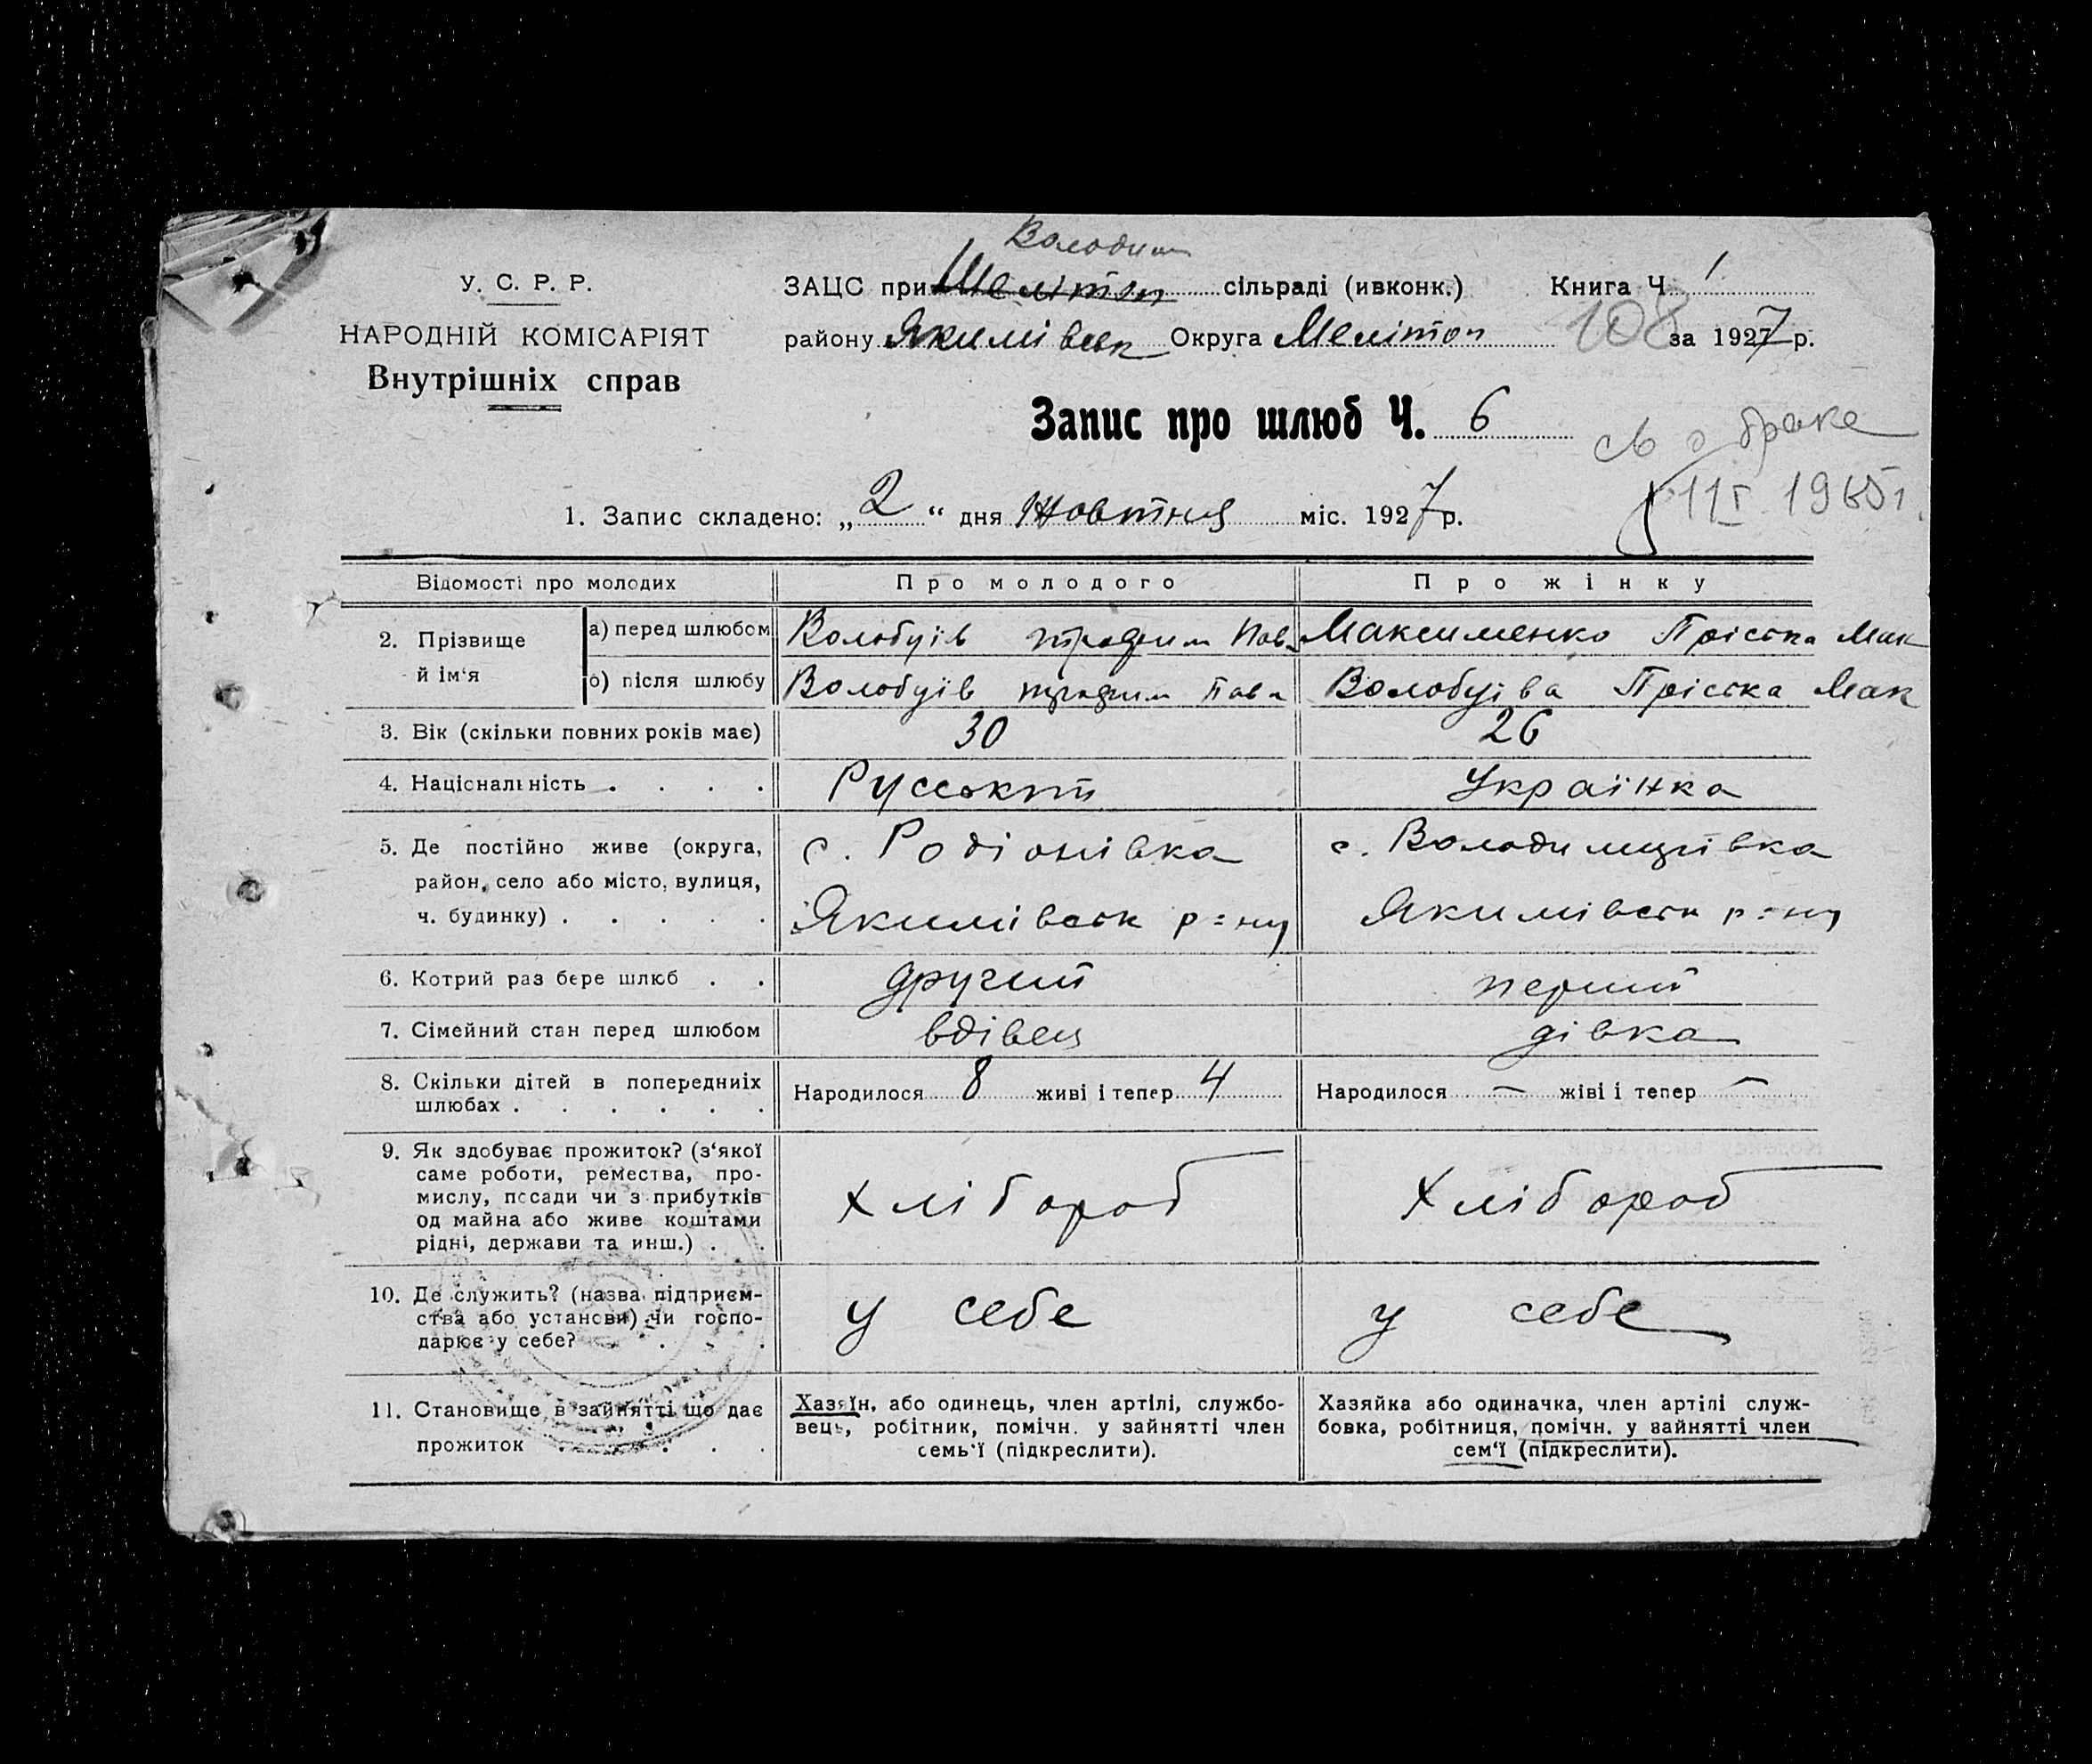 Володим
У. С. Р. Р.
ЗАЦС при Мелітоп сільраді (ивконк.) Книга Ч 1
НАРОДНІЙ КОМІСАРІЯТ
району Якимівськ Округа Мелітоп 108 за 1927 р.
Внутрішніх справ
Запис про шлюб Ч. 6
св о браке
11 I 1965 г.
1. Запис складено: „ 2 “ дня Жовтня міс. 1927 р.
Відомості про молодих Про молодого Про жінку
2. Прізвище й ім‘я
а) перед шлюбом Волобуїв Трофим Пав Максименко Пріська Мак
б) після шлюбу Волобуїв Трофим Пав Волобуїва Пріська Мак
3. Вік (скільки повних років має) 30 26
4. Національність . . . . Русський Українка
5. Де постійно живе (округа, с. Родіонівка с. Володимирівка
район, село або місто, вулиця,
ч. будинку) . . . . . Якимівськ р=ну Якимівськ р=ну
6. Котрий раз бере шлюб . . другий перший
7. Сімейний стан перед шлюбом вдівец дівка
8. Скільки дітей в попередниіх Народилося 8 живі і тепер 4 Народилося — жіві і тепер —
шлюбах . . . . . .
9. Як здобуває прожиток? (з‘якої
саме роботи, ремества, про-
мислу, посади чи з прибутків Хлібороб Хлібороб
од майна або живе коштами
рідні, держави та инш.) . .
10. Де служить? (назва підприєм-
ства або установи) чи госпо- у себе у себе
дарює у себе? . . . .
11. Становище в зайнятті що дає
прожиток . . . . .
Хазяїн, або одинець, член артілі, службо-
вець, робітник, помічн. у зайнятті член
семь‘ї (підкреслити).
Хазяйка або одиначка, член артілі служ-
бовка, робітниця, помічн. у зайнятті член
сем‘ї (підкреслити).